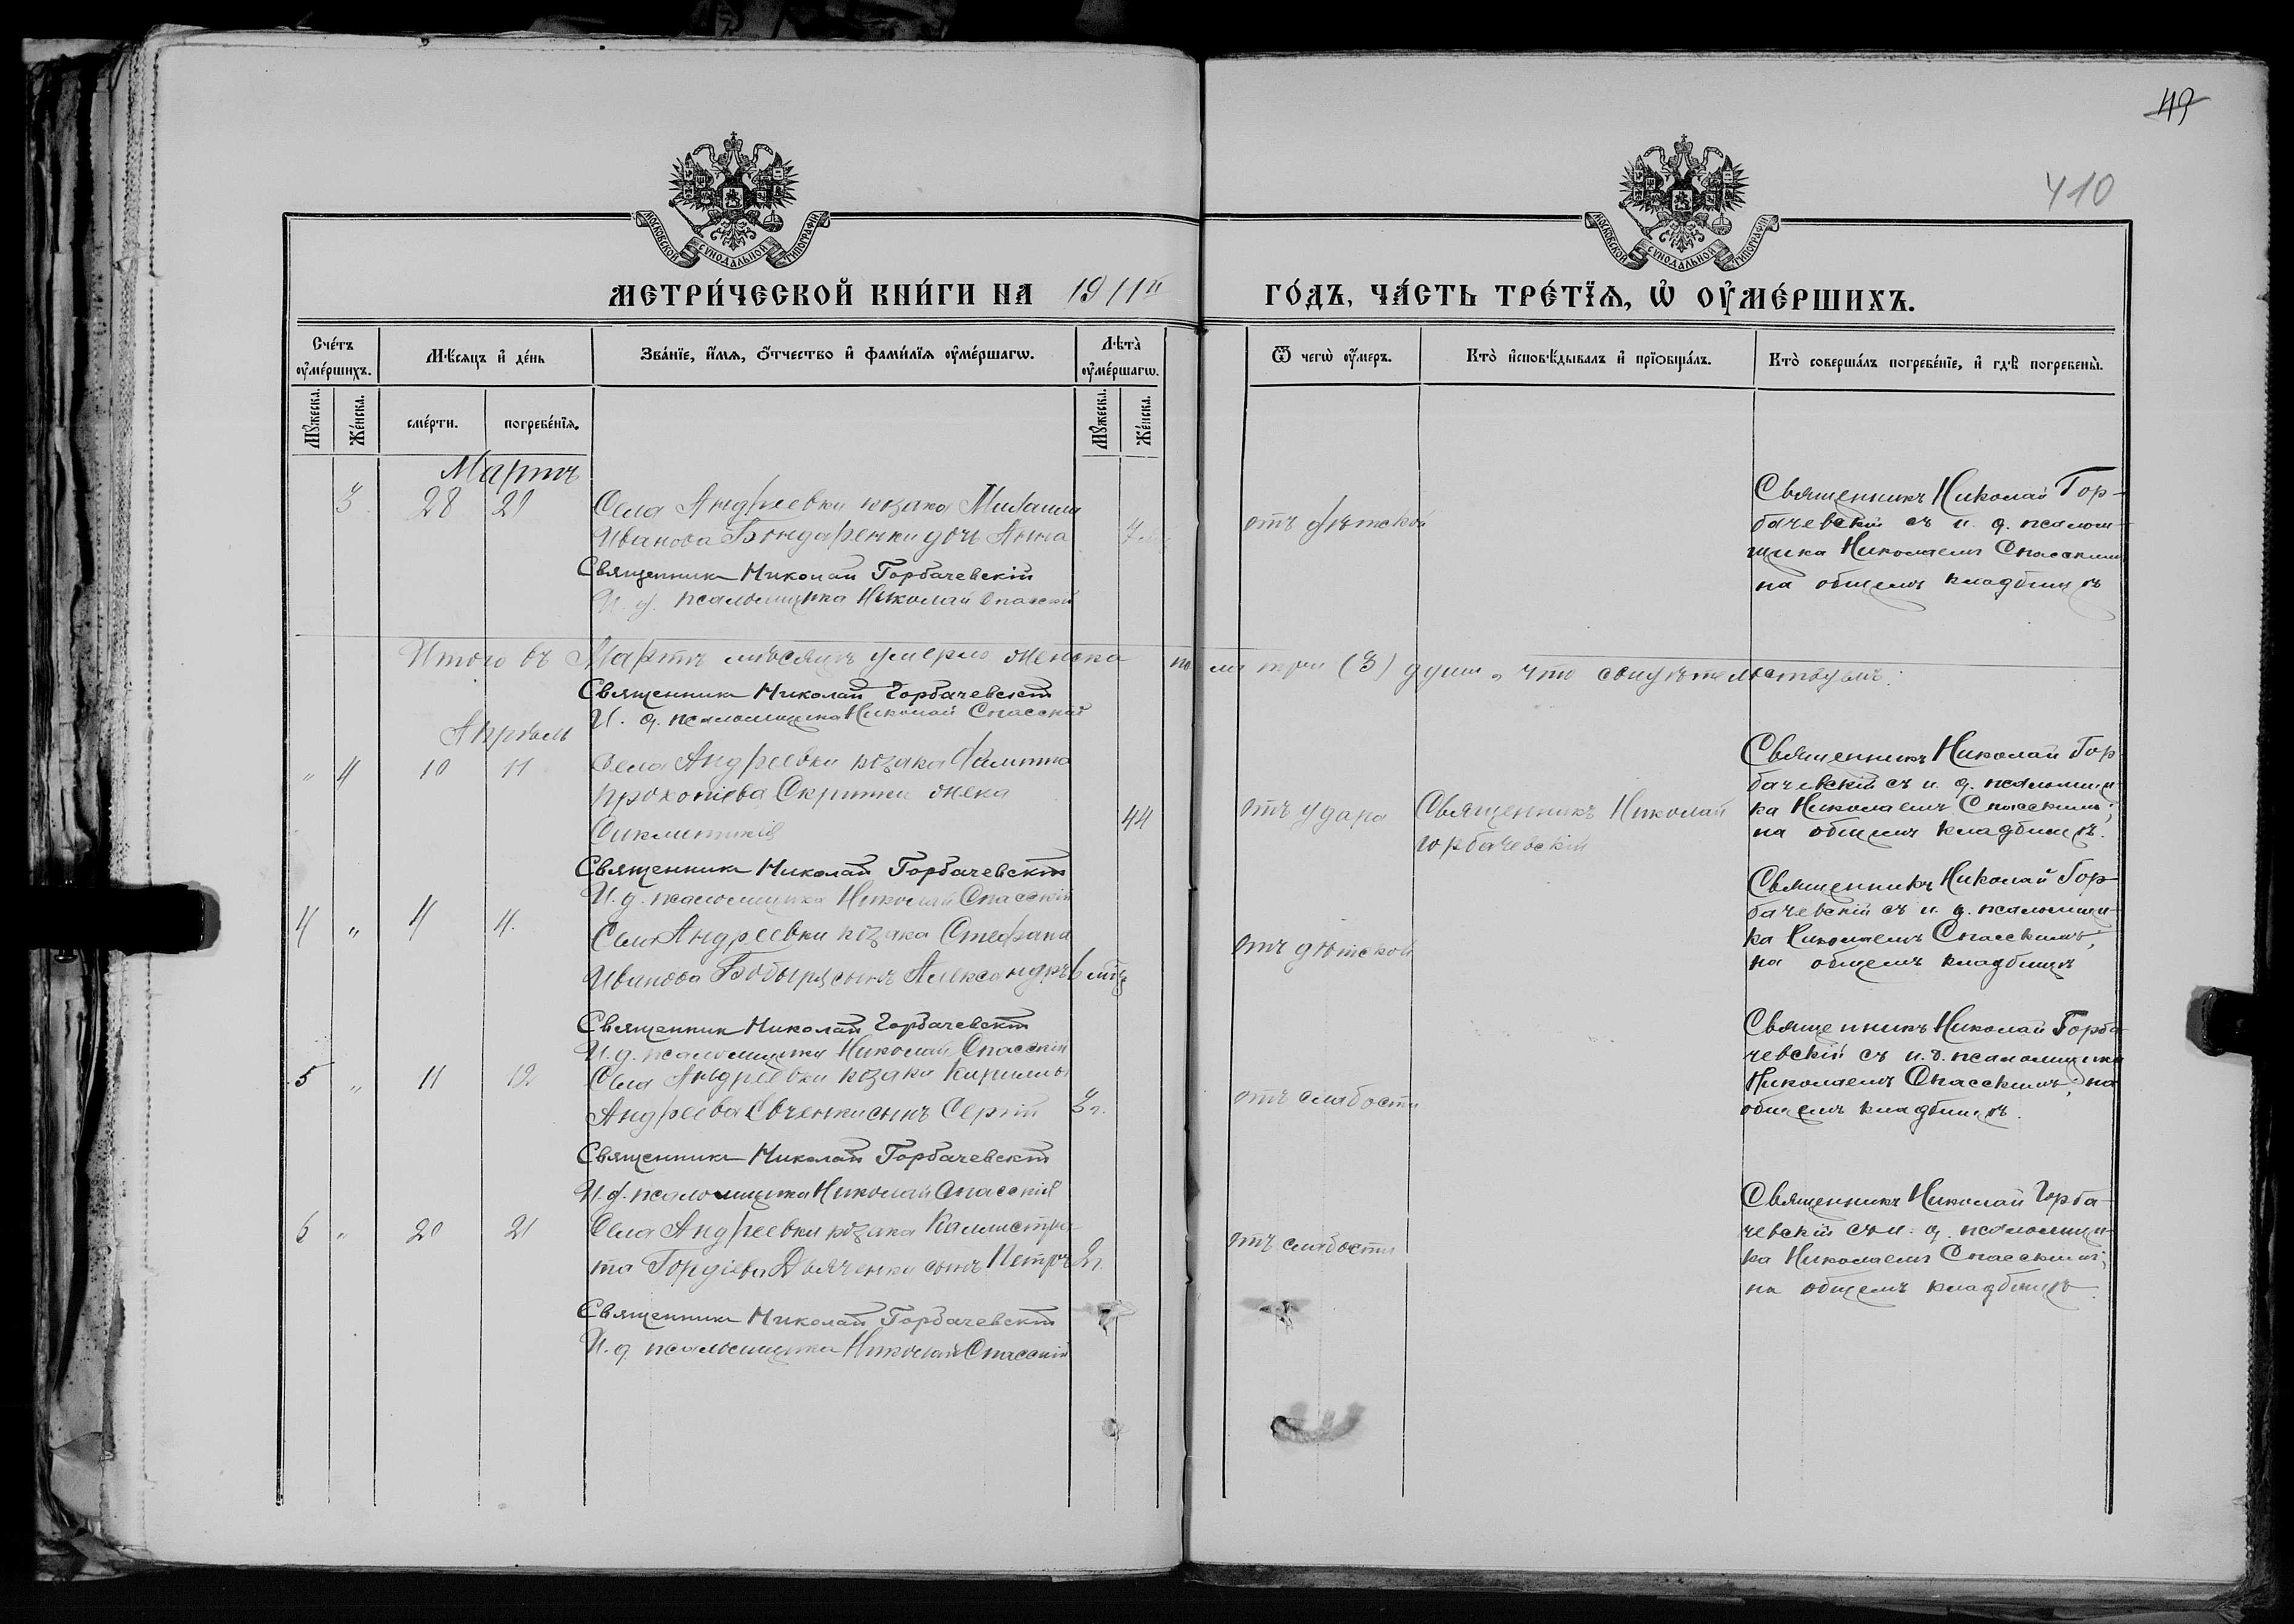 49
410
МОСКОВСКОЙ СѴНОДАЛЬНОЙ ТИПОГРАФІИ
МОСКОВСКОЙ СѴНОДАЛЬНОЙ ТИПОГРАФІИ
МЕТРИ́ЧЕСКОЙ КНИ́ГИ НА 1911й ГО́ДЪ, ЧА́СТЬ ТРЕ́ТЇѦ, Ѡ҆ ОУ҆МЕ́РШИХЪ.
Сче́тъ оу҆ме́ршихъ.
Мѣ́сяцъ и҆ де́нь
Зва́нїе, и҆́мѧ, ѻ҆́тчество и҆ фами́лїѧ оу҆ме́ршагѡ.
Лѣ́та̀ оу҆ме́ршагѡ.
Ѿ чегѡ̀ оу҆́меръ.
Кто̀ и҆сповѣ́дывалъ и҆ прїѡбща́лъ.
Кто̀ соверша́лъ погребе́нїе, и҆ гдѣ̀ погребены̀.
Мꙋ́жеска.
Же́нска.
сме́рти.
погребе́нїѧ.
Мꙋ́жеска.
Же́нска.
Мартъ
3 28 29
Села Андреевки козака
Иванова Бондаренки дочь Анна
7
отъ дѣтской
Священникъ Николай Гор-
бачевскій съ и. д. псалом-
щика Николаемъ Спасскимъ
на общемъ кладбищѣ
Священникъ Николай Горбачевскій
И. д. псаломщика Николай Спасскій
Итого въ Мартѣ мѣсяцѣ умерло женска пола три (3) души, что свидѣтельствуемъ:
Священникъ Николай Горбачевскій
И. д. псаломщика Николай Спасскій
Апрѣль
" 4 10 11
Села Андреевки козака Филиппа
Прокопіева Скрипки жена
44
отъ удара
Священникъ Николай
Горбачевскій
Священникъ Николай Гор
бачевскій съ и. д. псаломщи-
ка Николаемъ Спасскимъ,
на общемъ кладбищѣ.
Священникъ Николай Горбачевскій
И. д. псаломщика Николай Спасскій
4 " 4 4.
Села Андреевки козака Стефана
Иванова Бобыря сынъ Александръ
6 мѣс
отъ дѣтской
Священникъ Николай Гор-
бачевскій съ и. д. псаломщи-
ка Николаемъ Спасскимъ,
на общемъ кладбищѣ
Священникъ Николай Горбачевскій
И. д. псаломщика Николай Спасскій
5 " 11 12
Села Андреевки козака Кирилла
Андреева Евченки сынъ Сергій
3 г.
отъ слабости
Священникъ Николай Горба-
чевскій съ и. д. псаломщика
Николаемъ Спасскимъ, на
общемъ кладбищѣ.
Священникъ Николай Горбачевскій
И. д. псаломщика Николай Спасскій
6 " 20 21
Села Андреевки козака Каллистра-
та Гордіева Дьяченки сынъ Петръ
2 г.
отъ слабости
Священникъ Николай Горба-
чевскій съ и. д. псаломщи-
ка Николаемъ Спасскимъ,
на общемъ кладбищѣ.
Священникъ Николай Горбачевскій
И. д. псаломщика Николай Спасскій